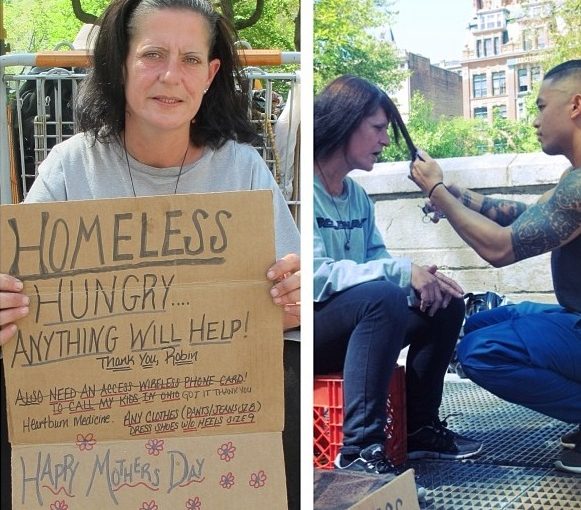 HOMELESS
HUNGRY....
ANYTHING WILL HELP!
Thank You, Robin
ALSO NEED AN ACCESS WIRELESS PHONE CARD!
TO CALL MY KIDS IN OHIO GOT IT THANK YOU
Heartburn Medicine. ANY CLOTHES (PANTS/JEANS SZ 8)
DRESS SHOES W/O HEELS SIZE 9
HAPPY MOTHERS DAY